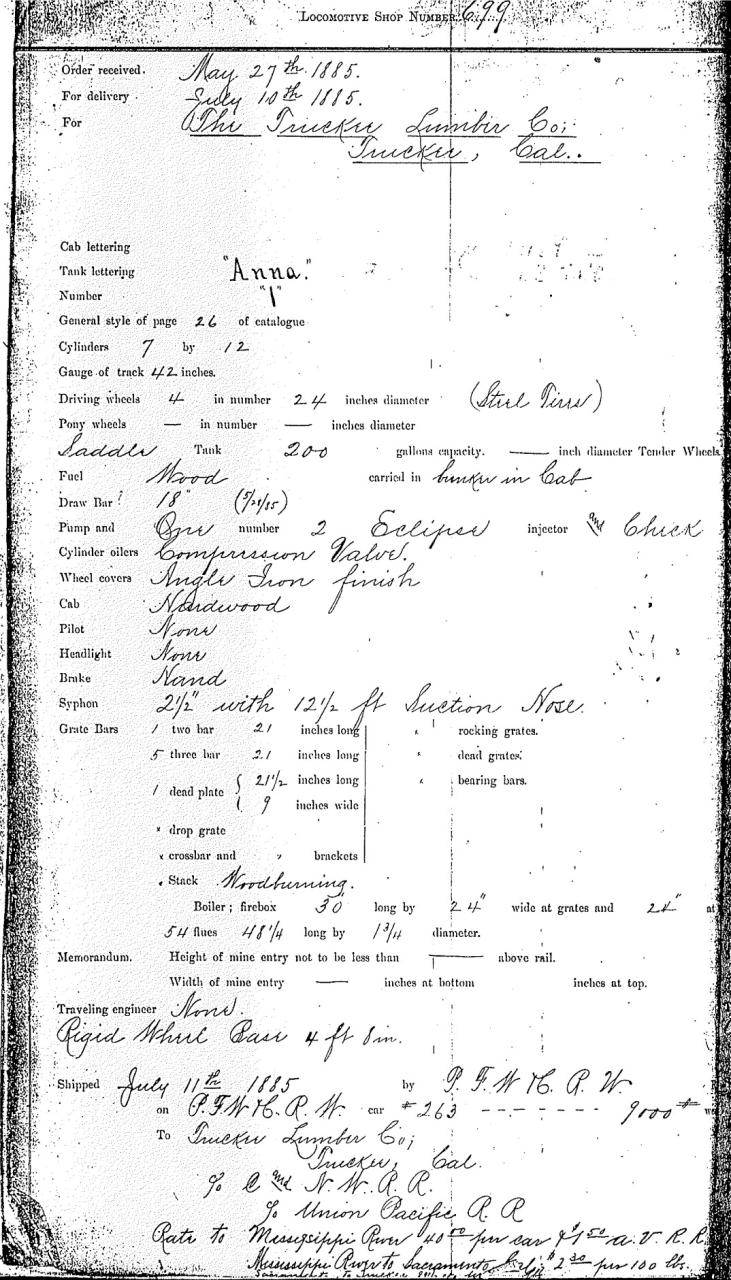 LOCOMOTIVE SHOP NUMBER 699
Order received. May 27th. 1885.
For delivery July 10th 1885.
For The Truckee Lumber Co;
Truckee, Cal..
Cab lettering
Tank lettering "Anna."
Number "1"
General style of page 26 of catalogue
Cylinders 7 by 12
Gauge of track 42 inches.
Driving wheels 4 in number 24 inches diameter (Steel Tires)
Pony wheels — in number — inches diameter
Saddle Tank 200 gallons capacity. — inch diameter Tender Wheels
Fuel Wood carried in bunker in Cab
Draw Bar 18" (5/28/85)
Pump and One number 2 Eclipse injector and Check
Cylinder oilers Compression Valve.
Wheel covers Angle Iron finish
Cab Hardwood
Pilot None
Headlight None
Brake Hand
Syphon 2 1/2" with 12 1/2 ft Suction Hose.
Grate Bars 1 two bar 21 inches long × rocking grates.
5 three bar 21 inches long × dead grates.
1 dead plate { 21 1/2 inches long × bearing bars.
9 inches wide
× drop grate
× crossbar and " brackets
Stack Woodburning.
Boiler; firebox 30 long by 24" wide at grates and 24" at
54 flues 48 1/4 long by 1 3/4 diameter.
Memorandum. Height of mine entry not to be less than — above rail.
Width of mine entry — inches at bottom inches at top.
Traveling engineer None.
Rigid Wheel Base 4 ft 8 in.
Shipped July 11th 1885 by P. F. W & C. R. W.
on P. F. W & C. R. W. car #263 - - - - - - 9000#
To Truckee Lumber Co;
Truckee, Cal.
℅ C and N. W. R. R.
℅ Union Pacific R. R
Rate to Mississippi River 40 00 per car & $1 50 a. V. R. R.
Mississippi River to Sacramento $2 30 per 100 lbs.
Sacramento to Truckee